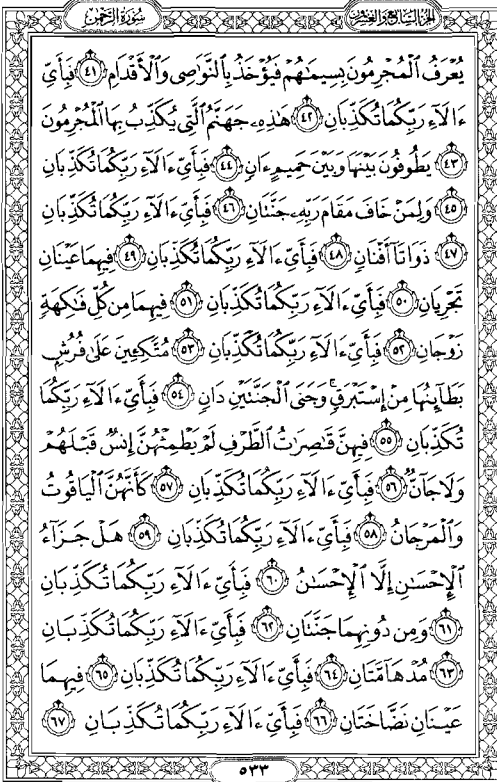 الجزء السابع والعشرون
سورة الرحمن
يُعۡرَفُ ٱلۡمُجۡرِمُونَ بِسِيمَٰهُمۡ فَيُؤۡخَذُ بِٱلنَّوَٰصِي وَٱلۡأَقۡدَامِ ٤١ فَبِأَيِّ
ءَالَآءِ رَبِّكُمَا تُكَذِّبَانِ ٤٢ هَٰذِهِۦ جَهَنَّمُ ٱلَّتِي يُكَذِّبُ بِهَا ٱلۡمُجۡرِمُونَ
٤٣ يَطُوفُونَ بَيۡنَهَا وَبَيۡنَ حَمِيمٍ ءَانٖ ٤٤ فَبِأَيِّ ءَالَآءِ رَبِّكُمَا تُكَذِّبَانِ
٤٥ وَلِمَنۡ خَافَ مَقَامَ رَبِّهِۦ جَنَّتَانِ ٤٦ فَبِأَيِّ ءَالَآءِ رَبِّكُمَا تُكَذِّبَانِ
٤٧ ذَوَاتَآ أَفۡنَانٖ ٤٨ فَبِأَيِّ ءَالَآءِ رَبِّكُمَا تُكَذِّبَانِ ٤٩ فِيهِمَا عَيۡنَانِ
تَجۡرِيَانِ ٥٠ فَبِأَيِّ ءَالَآءِ رَبِّكُمَا تُكَذِّبَانِ ٥١ فِيهِمَا مِن كُلِّ فَٰكِهَةٖ
زَوۡجَانِ ٥٢ فَبِأَيِّ ءَالَآءِ رَبِّكُمَا تُكَذِّبَانِ ٥٣ مُتَّكِـِٔينَ عَلَىٰ فُرُشِۭ
بَطَآئِنُهَا مِنۡ إِسۡتَبۡرَقٖۚ وَجَنَى ٱلۡجَنَّتَيۡنِ دَانٖ ٥٤ فَبِأَيِّ ءَالَآءِ رَبِّكُمَا
تُكَذِّبَانِ ٥٥ فِيهِنَّ قَٰصِرَٰتُ ٱلطَّرۡفِ لَمۡ يَطۡمِثۡهُنَّ إِنسٞ قَبۡلَهُمۡ
وَلَا جَآنّٞ ٥٦ فَبِأَيِّ ءَالَآءِ رَبِّكُمَا تُكَذِّبَانِ ٥٧ كَأَنَّهُنَّ ٱلۡيَاقُوتُ
وَٱلۡمَرۡجَانُ ٥٨ فَبِأَيِّ ءَالَآءِ رَبِّكُمَا تُكَذِّبَانِ ٥٩ هَلۡ جَزَآءُ
ٱلۡإِحۡسَٰنِ إِلَّا ٱلۡإِحۡسَٰنُ ٦٠ فَبِأَيِّ ءَالَآءِ رَبِّكُمَا تُكَذِّبَانِ
٦١ وَمِن دُونِهِمَا جَنَّتَانِ ٦٢ فَبِأَيِّ ءَالَآءِ رَبِّكُمَا تُكَذِّبَانِ
٦٣ مُدۡهَآمَّتَانِ ٦٤ فَبِأَيِّ ءَالَآءِ رَبِّكُمَا تُكَذِّبَانِ ٦٥ فِيهِمَا
عَيۡنَانِ نَضَّاخَتَانِ ٦٦ فَبِأَيِّ ءَالَآءِ رَبِّكُمَا تُكَذِّبَانِ ٦٧
٥٣٣